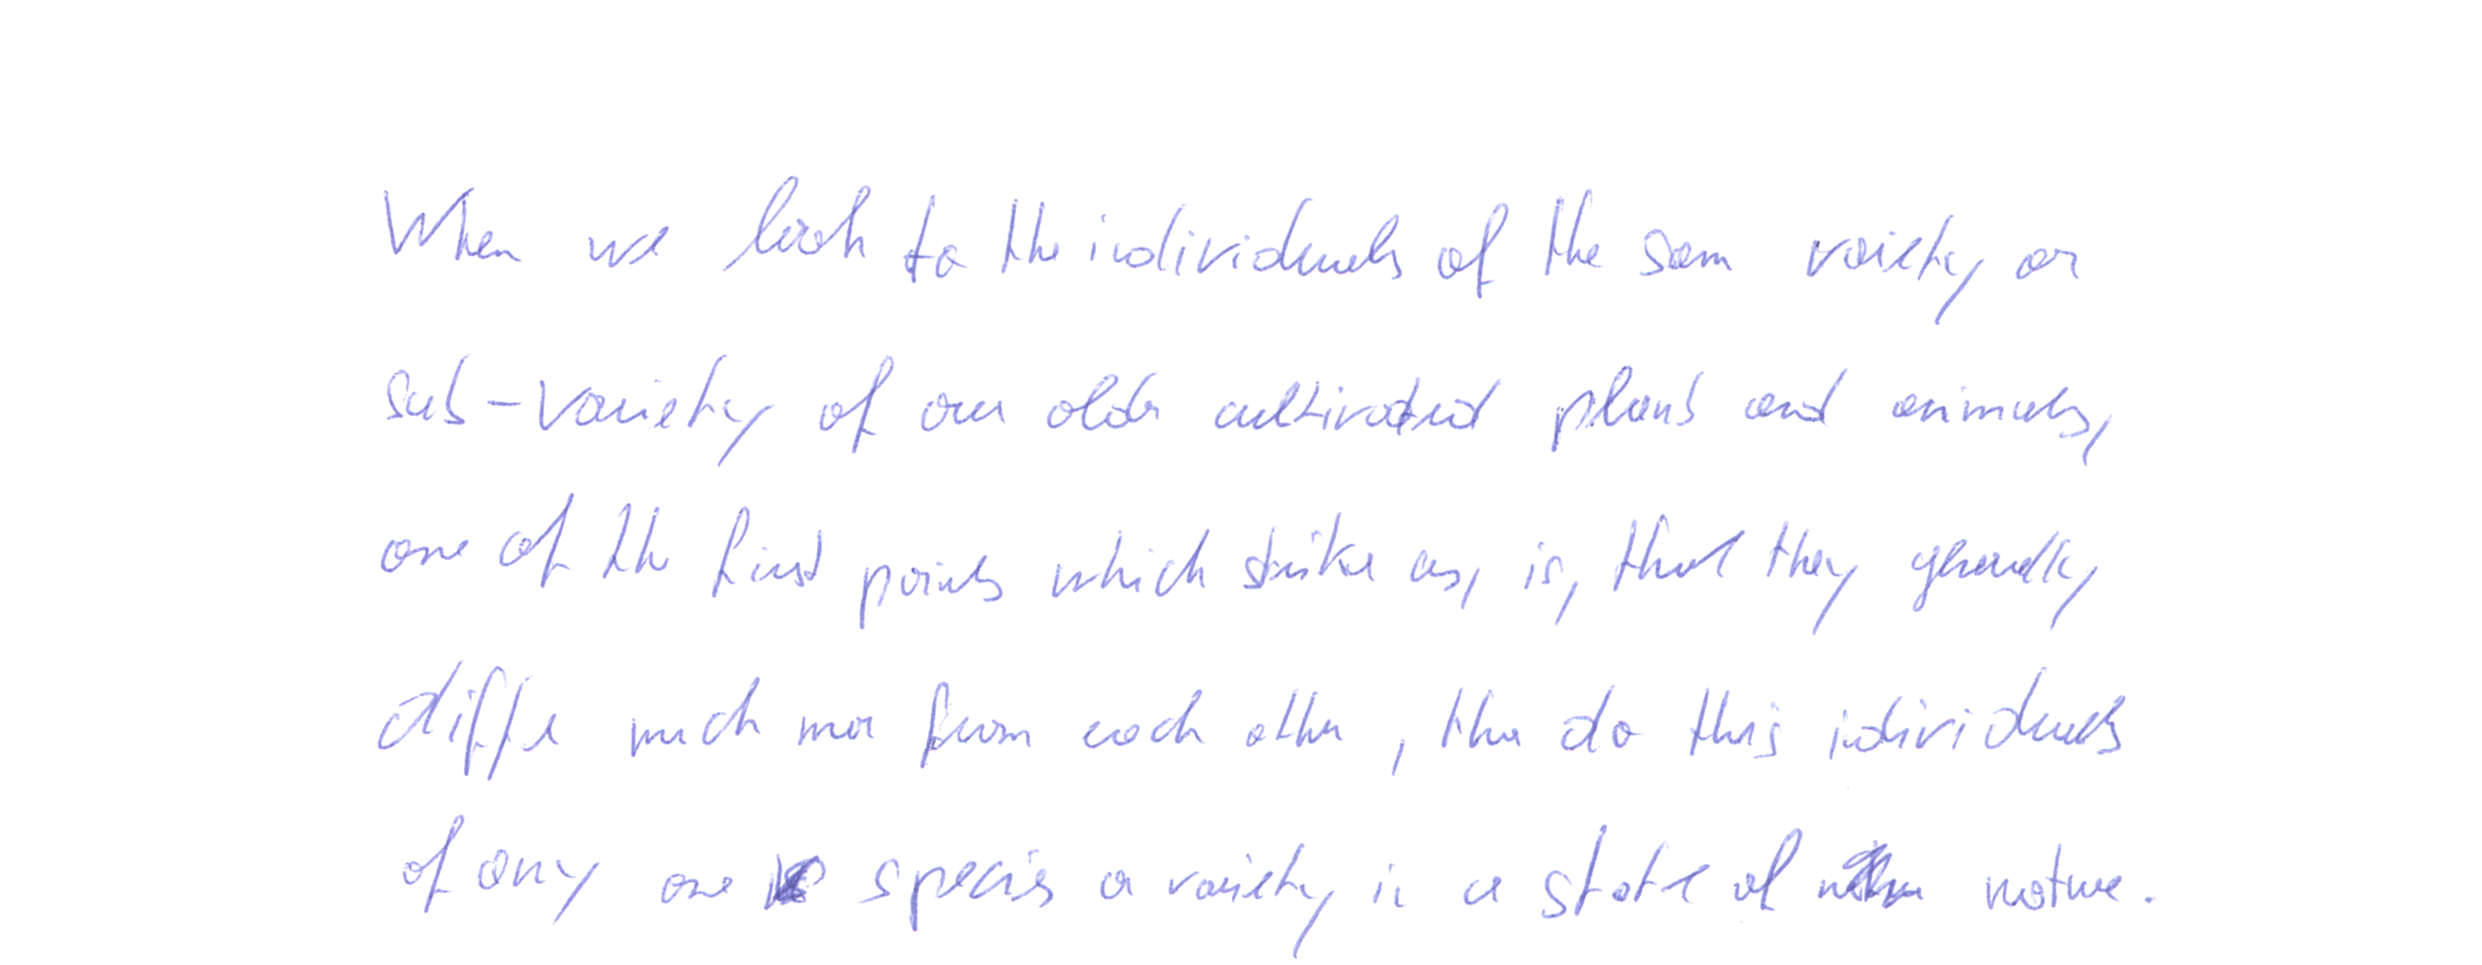 When we look to the individuals of the same variety or
sub-variety of our older cultivated plants and animals,
one of the first points which strike us, is, that they generally
differ much more from each other, than do this individuals
of any one species or variety in a state of nature.